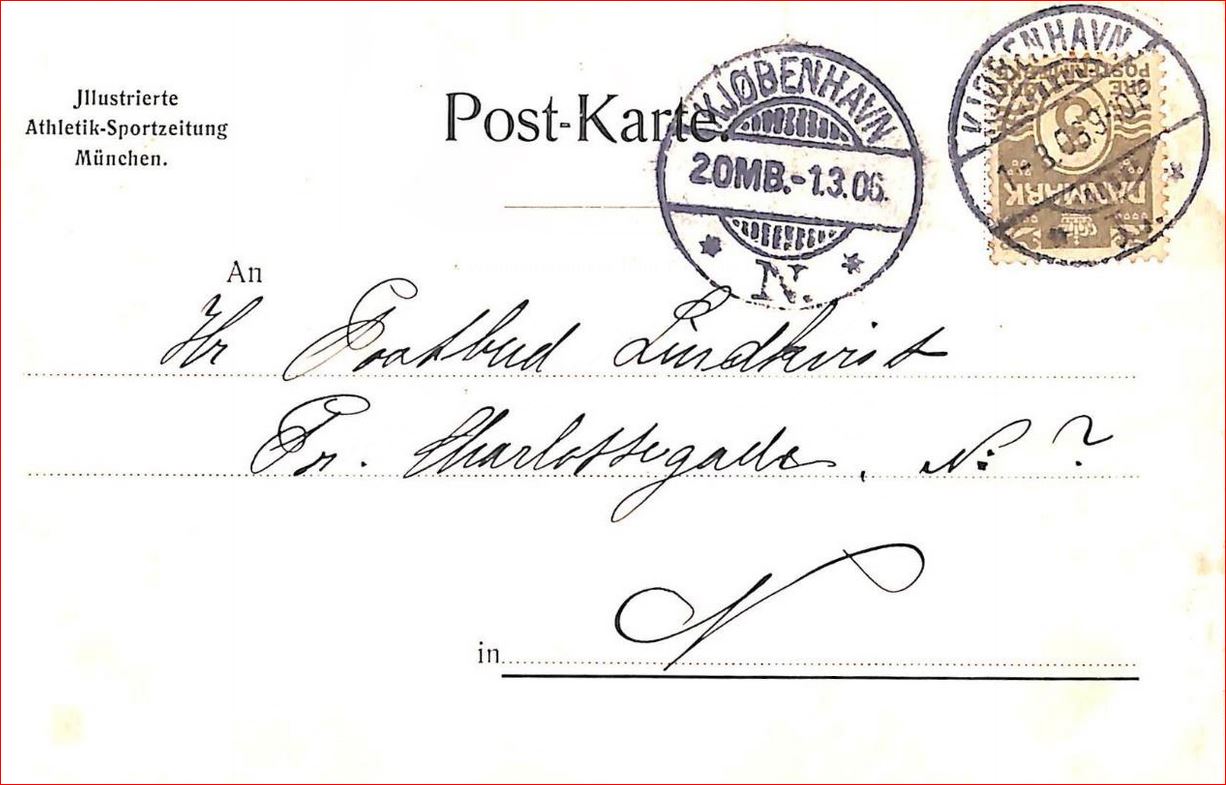 Jllustrierte
Athletik-Sportzeitung
München.
Post-Karte.
KJØBENHAVN
20MB.-1.3.06.
N.
KJØBENHAVN
POSTFRIM
ØRE
3
DANMARK
An
Hr Postbud Lindkvist
Pr. Charlottegade, No ?
in N